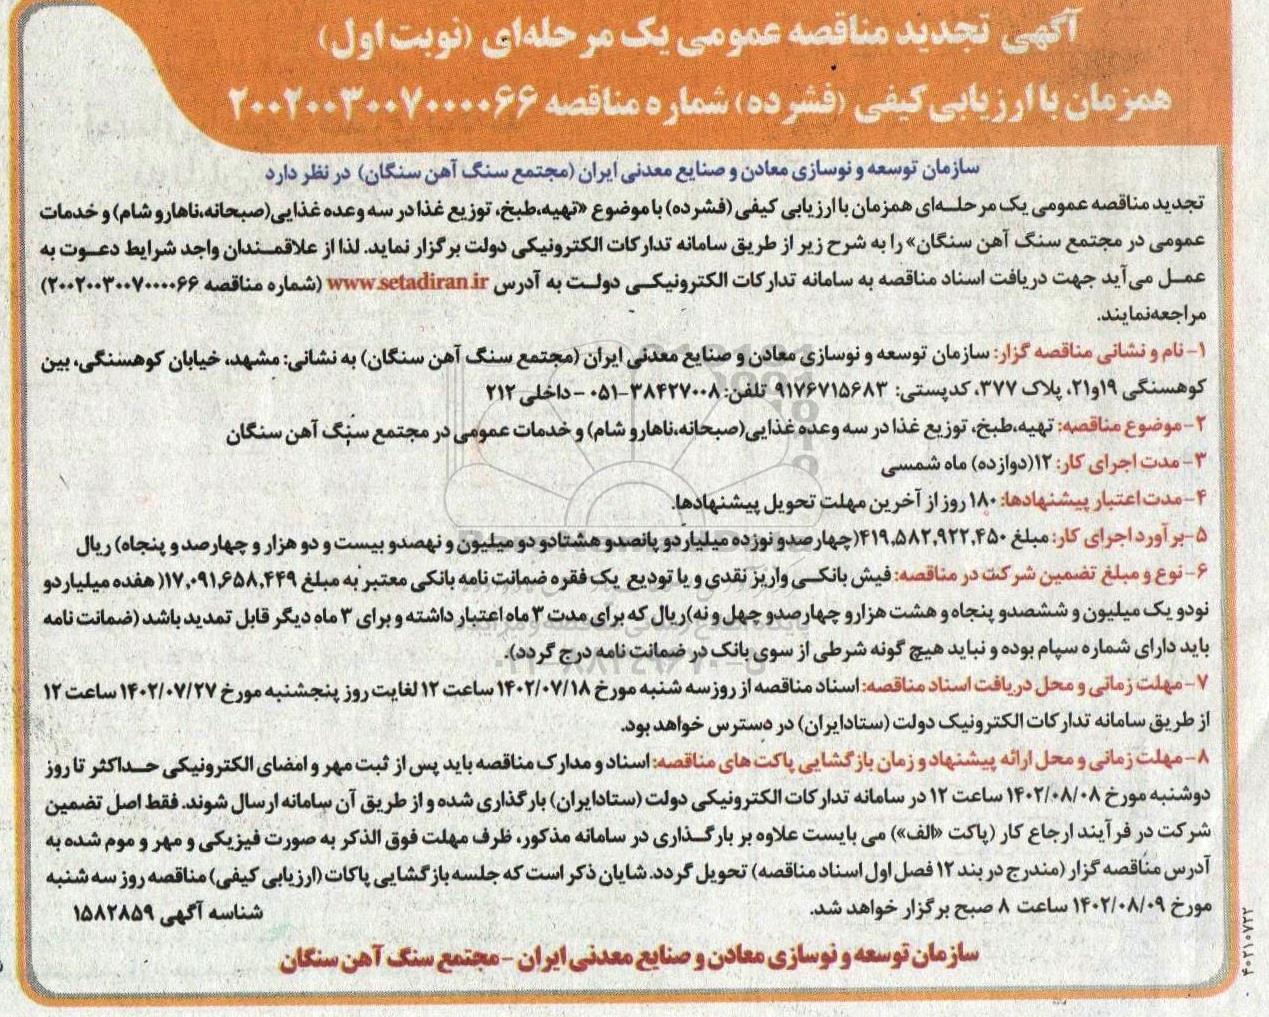 آگهی تجدید مناقصه عمومی یک مرحله‌ای (نوبت اول)
همزمان با ارزیابی کیفی (فشرده) شماره مناقصه ۲۰۰۲۰۰۳۰۰۷۰۰۰۰۶۶
سازمان توسعه و نوسازی معادن و صنایع معدنی ایران (مجتمع سنگ آهن سنگان) در نظر دارد
تجدید مناقصه عمومی یک مرحله‌ای همزمان با ارزیابی کیفی (فشرده) با موضوع «تهیه،طبخ، توزیع غذا در سه وعده غذایی(صبحانه،ناهار و شام) و خدمات
عمومی در مجتمع سنگ آهن سنگان» را به شرح زیر از طریق سامانه تدارکات الکترونیکی دولت برگزار نماید. لذا از علاقمندان واجد شرایط دعوت به
عمل می‌آید جهت دریافت اسناد مناقصه به سامانه تدارکات الکترونیکی دولت به آدرس www.setadiran.ir (شماره مناقصه ۲۰۰۲۰۰۳۰۰۷۰۰۰۰۶۶)
مراجعه‌نمایند.
۱- نام و نشانی مناقصه گزار: سازمان توسعه و نوسازی معادن و صنایع معدنی ایران (مجتمع سنگ آهن سنگان) به نشانی: مشهد، خیابان کوهسنگی، بین
کوهسنگی ۱۹و۲۱، پلاک ۳۷۷، کدپستی: ۹۱۷۶۷۱۵۶۸۳ تلفن: ۳۸۴۲۷۰۰۸-۰۵۱ - داخلی ۲۱۲
۲-موضوع مناقصه: تهیه،طبخ، توزیع غذا در سه وعده غذایی(صبحانه،ناهار و شام) و خدمات عمومی در مجتمع سنگ آهن سنگان
۳- مدت اجرای کار: ۱۲(دوازده) ماه شمسی
۴-مدت اعتبار پیشنهادها: ۱۸۰ روز از آخرین مهلت تحویل پیشنهادها.
۵-برآورد اجرای کار: مبلغ ۴۱۹,۵۸۲,۹۲۲,۴۵۰(چهارصدو نوزده میلیاردو پانصدو هشتادو دو میلیون و نهصدو بیست و دو هزار و چهارصد و پنجاه) ریال
۶-نوع و مبلغ تضمین شرکت در مناقصه: فیش بانکی واریز نقدی و یا تودیع یک فقره ضمانت نامه بانکی معتبر به مبلغ ۱۷,۰۹۱,۶۵۸,۴۴۹( هفده میلیاردو
نودو یک میلیون و ششصدو پنجاه و هشت هزارو چهارصدو چهل و نه)ریال که برای مدت ۳ ماه اعتبار داشته و برای ۳ ماه دیگر قابل تمدید باشد (ضمانت نامه
باید دارای شماره سپام بوده و نباید هیچ گونه شرطی از سوی بانک در ضمانت نامه درج گردد).
۷-مهلت زمانی و محل دریافت اسناد مناقصه: اسناد مناقصه از روزسه شنبه مورخ ۱۴۰۲/۰۷/۱۸ ساعت ۱۲ لغایت روز پنجشنبه مورخ ۱۴۰۲/۰۷/۲۷ ساعت ۱۲
از طریق سامانه تدارکات الکترونیک دولت (ستادایران) در دسترس خواهد بود.
۸-مهلت زمانی و محل ارائه پیشنهاد و زمان بازگشایی پاکت های مناقصه: اسناد و مدارک مناقصه باید پس از ثبت مهر و امضای الکترونیکی حداکثر تا روز
دوشنبه مورخ ۱۴۰۲/۰۸/۰۸ ساعت ۱۲ در سامانه تدارکات الکترونیکی دولت (ستادایران) بارگذاری شده و از طریق آن سامانه ارسال شوند. فقط اصل تضمین
شرکت در فرآیند ارجاع کار (پاکت «الف») می بایست علاوه بر بارگذاری در سامانه مذکور، ظرف مهلت فوق الذکر به صورت فیزیکی و مهر و موم شده به
آدرس مناقصه گزار (مندرج در بند ۱۲ فصل اول اسناد مناقصه) تحویل گردد.شایان ذکر است که جلسه بازگشایی پاکات (ارزیابی کیفی) مناقصه روز سه شنبه
مورخ ۱۴۰۲/۰۸/۰۹ ساعت ۸ صبح برگزار خواهد شد.
شناسه آگهی ۱۵۸۲۸۵۹
سازمان توسعه و نوسازی معادن و صنایع معدنی ایران - مجتمع سنگ آهن سنگان
۴۰۲۱۰۷۲۲